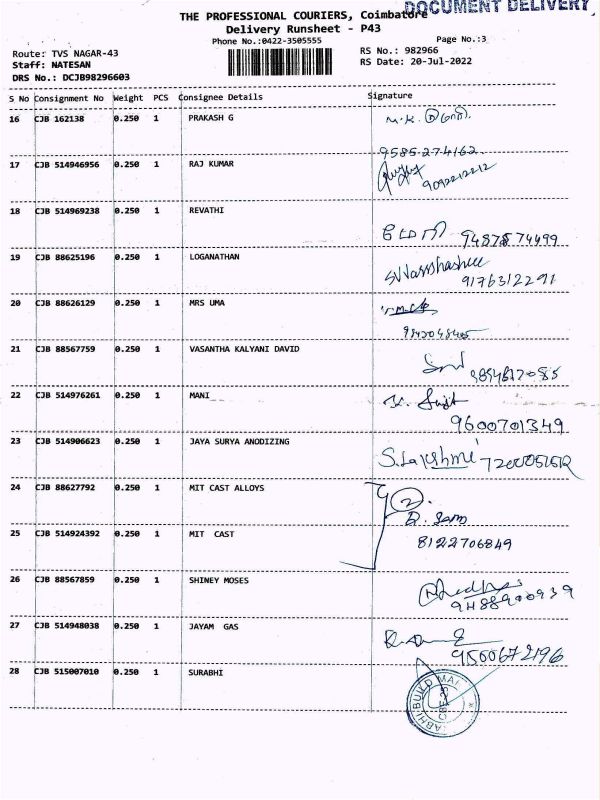 DOCUMENT DELIVERY
THE PROFESSIONAL COURIERS, Coimbatore
Delivery Runsheet - P43
Phone No.:0422-3505555
Page No.:3
Route: TVS NAGAR-43
RS No.: 982966
Staff: NATESAN
RS Date: 20-Jul-2022
DRS No.: DCJB98296603
S No Consignment No Weight PCS Consignee Details Signature
16 CJB 162138 0.250 1 PRAKASH G
9585274162
17 CJB 514946956 0.250 1 RAJ KUMAR
9092212212
18 CJB 514969238 0.250 1 REVATHI
9487874499
19 CJB 88625196 0.250 1 LOGANATHAN
9176312291
20 CJB 88626129 0.250 1 MRS UMA
21 CJB 88567759 0.250 1 VASANTHA KALYANI DAVID
22 CJB 514976261 0.250 1 MANI
9600701349
23 CJB 514906623 0.250 1 JAYA SURYA ANODIZING S. Lakshmi
24 CJB 88627792 0.250 1 MIT CAST ALLOYS 2
25 CJB 514924392 0.250 1 MIT CAST
8122706849
26 CJB 88567859 0.250 1 SHINEY MOSES
9488900939
27 CJB 514948038 0.250 1 JAYAM GAS
9500672196
28 CJB 515007010 0.250 1 SURABHI